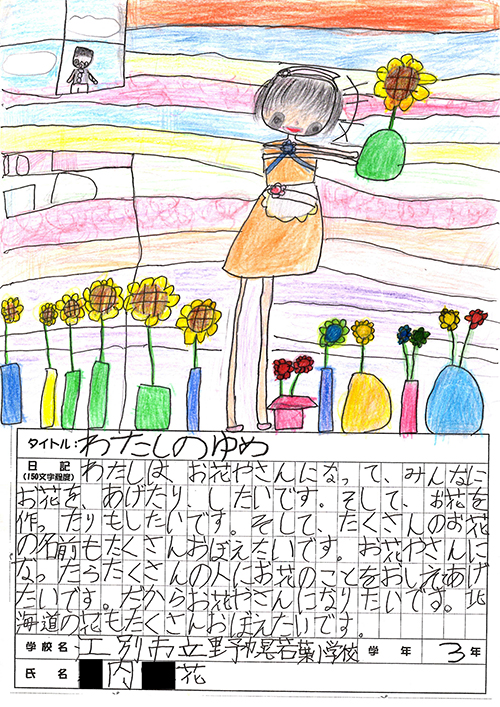 タイトル：わたしのゆめ
日記
(150文字程度)
わたしは、お花やさんになって、みんなに
お花を、あげたり、したいです。そして、お花を
作ったりもしたいです。そして、たくさんのお花
の名前もたくさんおぼえたいです。お花やさんに
なったらたくさんの人にお花のことをおしえてあげ
たいです。だからお花やさんになりたいです。北
海道の花もたくさんおぼえたいです。
学校名 江別市立野幌若葉小学校 学年 3年
氏名 内 花